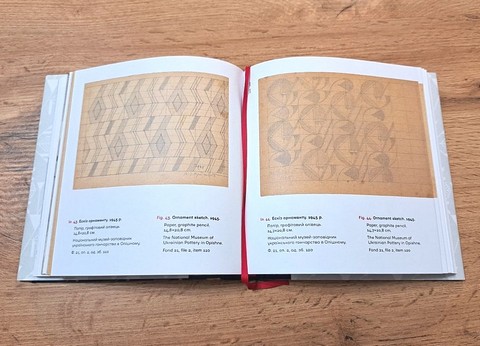 Іл. 43. Ескіз орнаменту. 1945 р.
Папір, графітний олівець.
14,8×20,8 см.
Національний музей-заповідник
українського гончарства в Опішному.
Ф. 21, оп. 2, од. зб. 220
Fig. 43. Ornament sketch. 1945.
Paper, graphite pencil.
14,8×20,8 cm.
The National Museum of
Ukrainian Pottery in Opishne.
Fond 21, file 2, item 220
Іл. 44. Ескіз орнаменту. 1945 р.
Папір, графітний олівець.
14,7×20,8 см.
Національний музей-заповідник
українського гончарства в Опішному.
Ф. 21, оп. 2, од. зб. 220
Fig. 44. Ornament sketch. 1945.
Paper, graphite pencil.
14,7×20,8 cm.
The National Museum of
Ukrainian Pottery in Opishne.
Fond 21, file 2, item 220